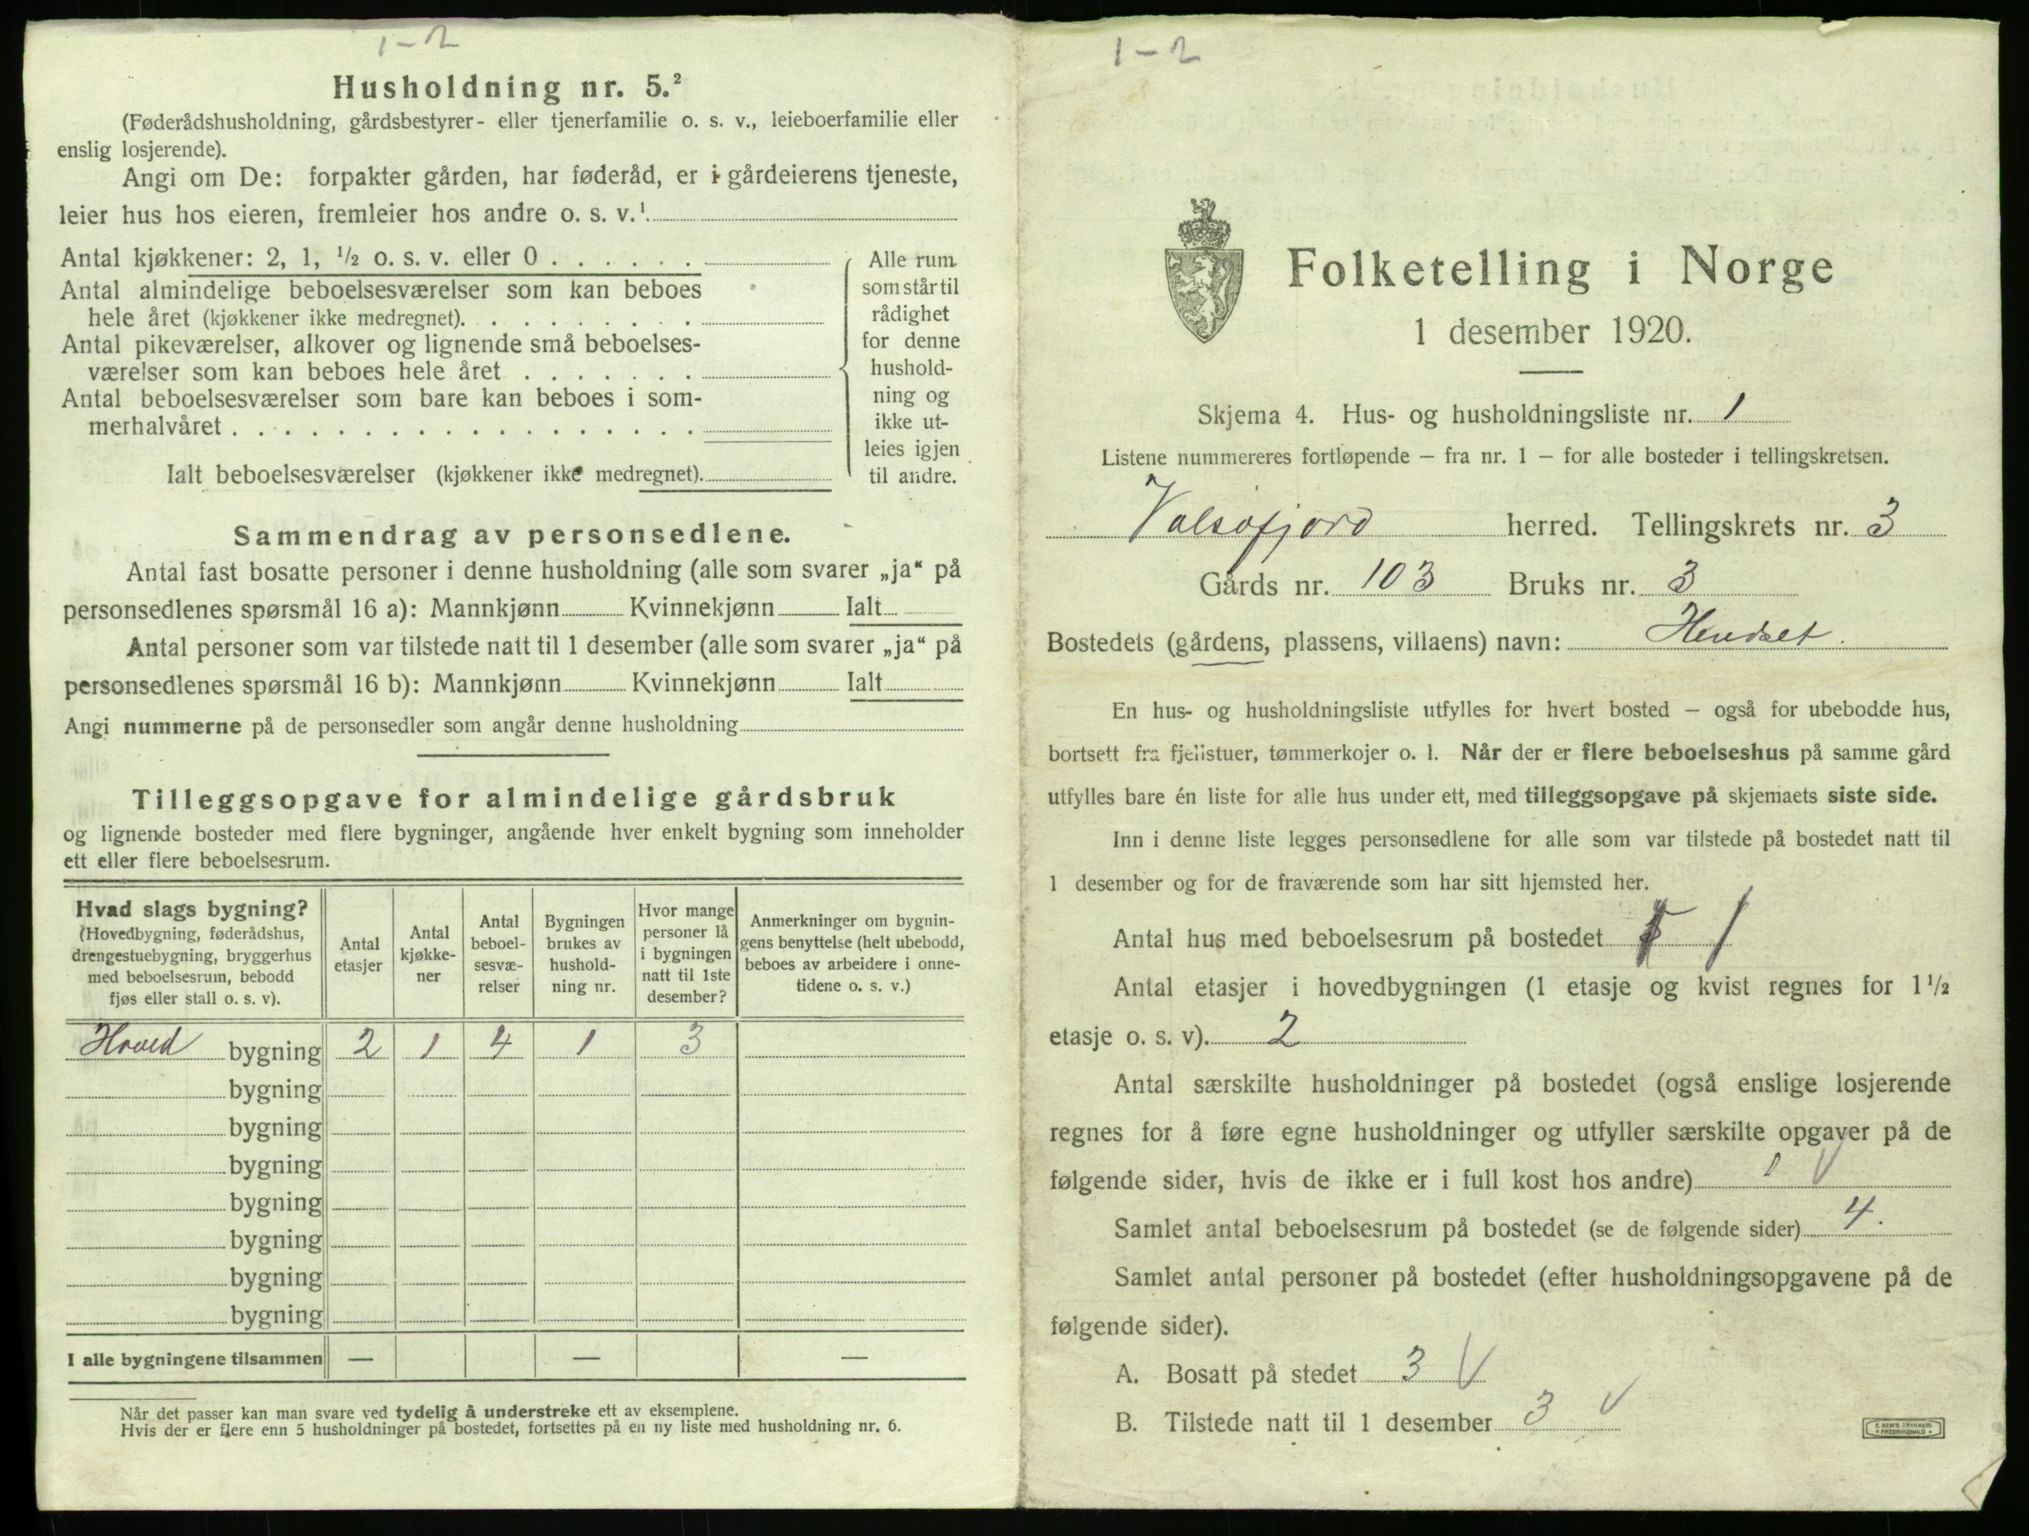 1-2
Husholdning nr. 5.²
(Føderådshusholdning, gårdsbestyrer- eller tjenerfamilie o. s. v., leieboerfamilie eller
enslig losjerende).
Angi om De: forpakter gården, har føderåd, er i gårdeierens tjeneste,
leier hus hos eieren, fremleier hos andre o. s. v.¹
Antal kjøkkener: 2, 1, ½ o. s. v. eller 0 . . . . . .
Antal almindelige beboelsesværelser som kan beboes
hele året (kjøkkener ikke medregnet). . . . . . . . .
Antal pikeværelser, alkover og lignende små beboelses-
værelser som kan beboes hele året . . . . . . .
Antal beboelsesværelser som bare kan beboes i som-
merhalvåret . . . . . . . . . . . . . . . . . .
Ialt beboelsesværelser (kjøkkener ikke medregnet).
Alle rum
som står til
rådighet
for denne
hushold-
ning og
ikke ut-
leies igjen
til andre.
Sammendrag av personsedlene.
Antal fast bosatte personer i denne husholdning (alle som svarer „ja“ på
personsedlenes spørsmål 16 a): Mannkjønn Kvinnekjønn Ialt
Antal personer som var tilstede natt til 1 desember (alle som svarer „ja“ på
personsedlenes spørsmål 16 b): Mannkjønn Kvinnekjønn Ialt
Angi nummerne på de personsedler som angår denne husholdning
Tilleggsopgave for almindelige gårdsbruk
og lignende bosteder med flere bygninger, angående hver enkelt bygning som inneholder
ett eller flere beboelsesrum.
Hvad slags bygning?
(Hovedbygning, føderådshus,
drengestuebygning, bryggerhus
med beboelsesrum, bebodd
fjøs eller stall o. s. v).
Antal
etasjer
Antal
kjøkke-
ner
Antal
beboel-
sesvæ-
relser
Bygningen
brukes av
hushold-
ning nr.
Hvor mange
personer lå
i bygningen
natt til 1ste
desember?
Anmerkninger om bygnin-
gens benyttelse (helt ubebodd,
beboes av arbeidere i onne-
tidene o. s. v.)
Hoved bygning 2 1 4 1 3
bygning
bygning
bygning
bygning
bygning
bygning
bygning
I alle bygningene tilsammen — — —
Når det passer kan man svare ved tydelig å understreke ett av eksemplene.
Hvis der er flere enn 5 husholdninger på bostedet, fortsettes på en ny liste med husholdning nr. 6.
1-2
Folketelling i Norge
1 desember 1920.
Skjema 4. Hus- og husholdningsliste nr. 1
Listene nummereres fortløpende – fra nr. 1 – for alle bosteder i tellingskretsen.
Valsøfjord herred. Tellingskrets nr. 3
Gårds nr. 103 Bruks nr. 3
Bostedets (gårdens, plassens, villaens) navn: Hendset.
En hus- og husholdningsliste utfylles for hvert bosted – også for ubebodde hus,
bortsett fra fjellstuer, tømmerkojer o. l. Når der er flere beboelseshus på samme gård
utfylles bare én liste for alle hus under ett, med tilleggsopgave på skjemaets siste side.
Inn i denne liste legges personsedlene for alle som var tilstede på bostedet natt til
1 desember og for de fraværende som har sitt hjemsted her.
Antal hus med beboelsesrum på bostedet 1
Antal etasjer i hovedbygningen (1 etasje og kvist regnes for 1½
etasje o. s. v). 2
Antal særskilte husholdninger på bostedet (også enslige losjerende
regnes for å føre egne husholdninger og utfyller særskilte opgaver på de
følgende sider, hvis de ikke er i full kost hos andre) 1 V
Samlet antal beboelsesrum på bostedet (se de følgende sider) 4.
Samlet antal personer på bostedet (efter husholdningsopgavene på de
følgende sider).
A. Bosatt på stedet 3 V
B. Tilstede natt til 1 desember 3 V
E. SEM'S TRYKKERI
FREDRIKSHALD